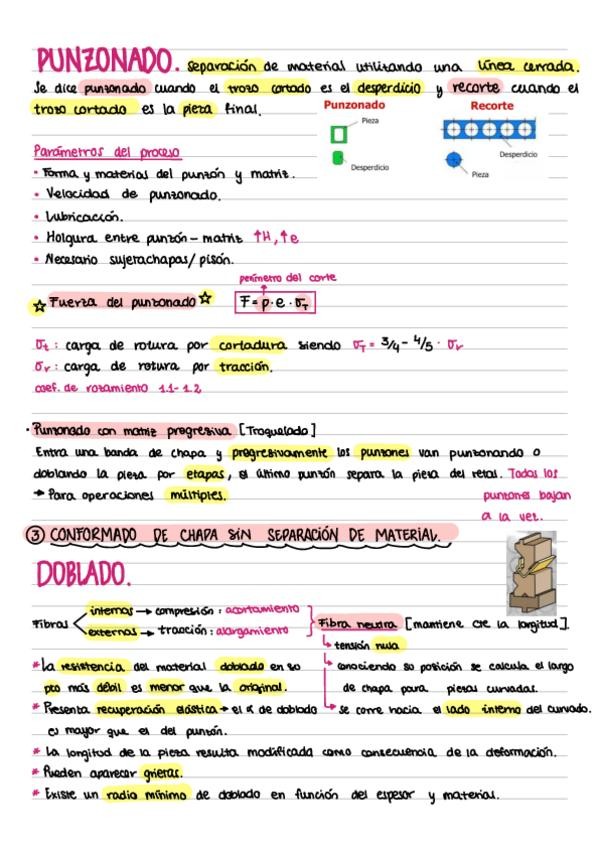 PUNZONADO. Separación de material utilizando una línea cerrada.
Se dice punzonado cuando el trozo cortado es el desperdicio y recorte cuando el
trozo cortado es la pieza final.
Punzonado
Pieza
Desperdicio
Recorte
Desperdicio
Pieza
Parámetros del proceso
• Forma y materias del punzón y matriz.
• Velocidad de punzonado.
• Lubricación.
• Holgura entre punzón - matriz ↑H, ↑e
• Necesario sujetachapas/ pisón.
perímetro del corte
☆ Fuerza del punzonado ☆ F = p · e · σT
σt : carga de rotura por cortadura siendo σT = 3/4 - 4/5 · σr
σr : carga de rotura por tracción.
coef. de rozamiento 1.1 - 1.2
· Punzonado con matriz progresiva [Troquelado]
Entra una banda de chapa y progresivamente los punzones van punzonando o
doblando la pieza por etapas, el último punzón separa la pieza del retas. Todos los
→ Para operaciones múltiples. punzones bajan
a la vez.
③ CONFORMADO DE CHAPA SIN SEPARACIÓN DE MATERIAL.
DOBLADO.
Fibras
internas → compresión : acortamiento
externas → tracción : alargamiento
Fibra neutra [mantiene cte la longitud].
↳ tensión nula
↳ conociendo su posición se calcula el largo
de chapa para piezas curvadas.
↳ se corre hacia el lado interno del curvado.
* La resistencia del material doblado en su
pto más débil es menor que la original.
* Presenta recuperación elástica → el α de doblado
es mayor que el del punzón.
* La longitud de la pieza resulta modificada como consecuencia de la deformación.
* Pueden aparecer grietas.
* Existe un radio mínimo de doblado en función del espesor y material.